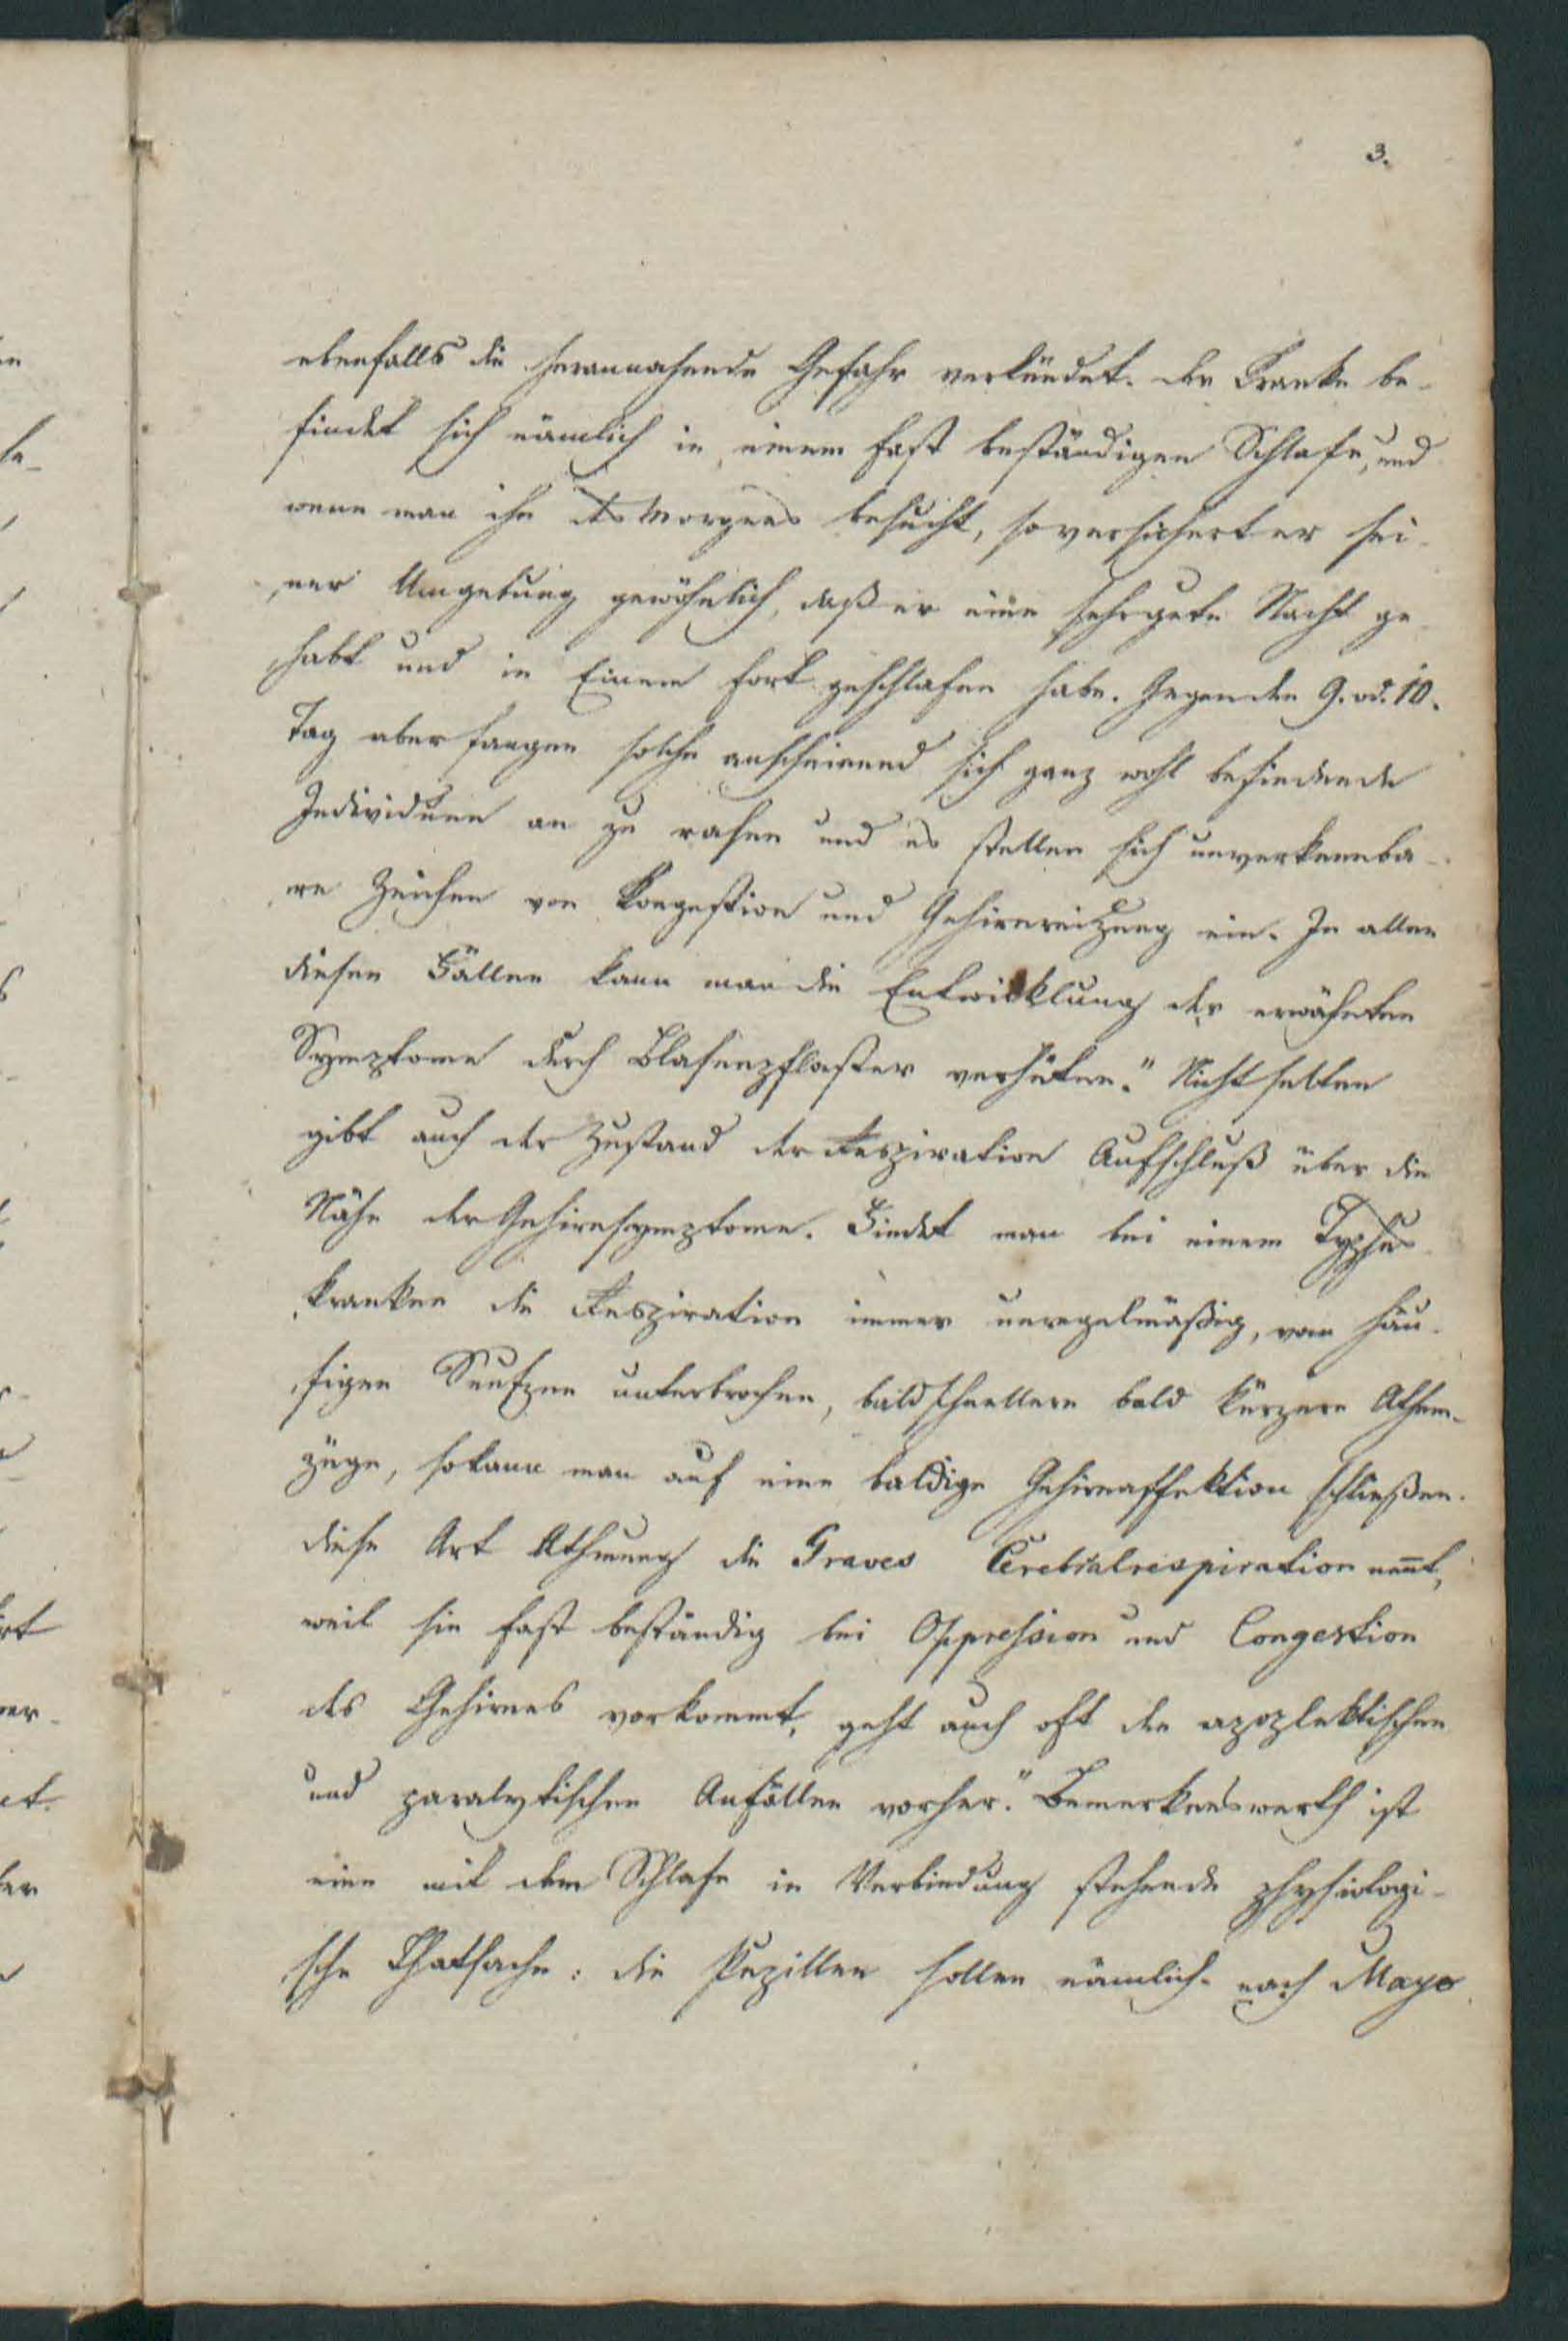 3.
ebenfalls die herannahende Gefahr verkündet. Der Kranke be-
findet sich nämlich in einem fast beständigen Schlafe, und
wenn man ihn des Morgens besucht, so versichert er sei-
ner Umgebung gewöhnlich, daß er eine sehr gute Nacht ge-
habt und in Einem fort geschlafen habe. Gegen den 9. od. 10.
Tag aber fangen solche anscheinend sich ganz wohl befindende
Individuen an zu rasen und es stellen sich unverkennba-
re Zeichen von Kongestion und Gehirnreitzung ein. In allen
diesen Fällen kann man die Entwicklung der erwähnten
Symptome durch Blasenpflaster verhüten." Nicht selten
gibt auch der Zustand der Respiration Aufschluß über die
Nähe der Gehirnsymptome. Findet man bei einem Typhus
kranken die Respiration immer unregelmäßig, von häu-
figen Seufzen unterbrochen, bald schnellere bald kürzere Athem-
züge, so kann man auf eine baldige Gehirnaffektion schließen.
Diese Art Athmung die Graves Cerebralrespiration nennt,
weil sie fast beständig bei Oppression und Congestion
des Gehirnes vorkommt, geht auch oft den apoplektischen
und paralytischen Anfällen vorher." Bemerkenswerth ist
eine mit dem Schlafe in Verbindung stehende physiologi-
sche Thatsache: die Pupillen sollen nämlich nach Mayo